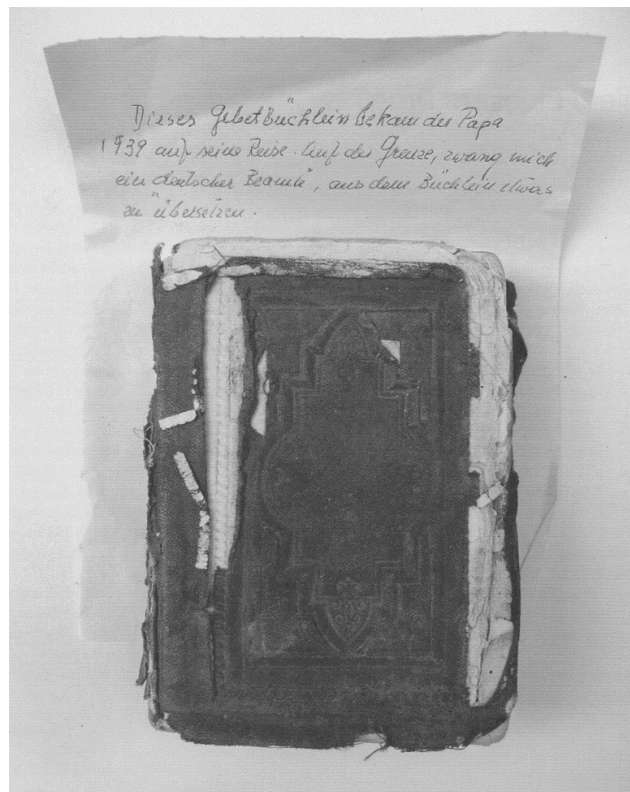 Dieses Gebetbüchlein bekam der Papa
1939 auf seine Reise. Auf der Grenze, zwang mich
ein deutscher Beamte, aus dem Büchlein etwas
zu übersetzen.